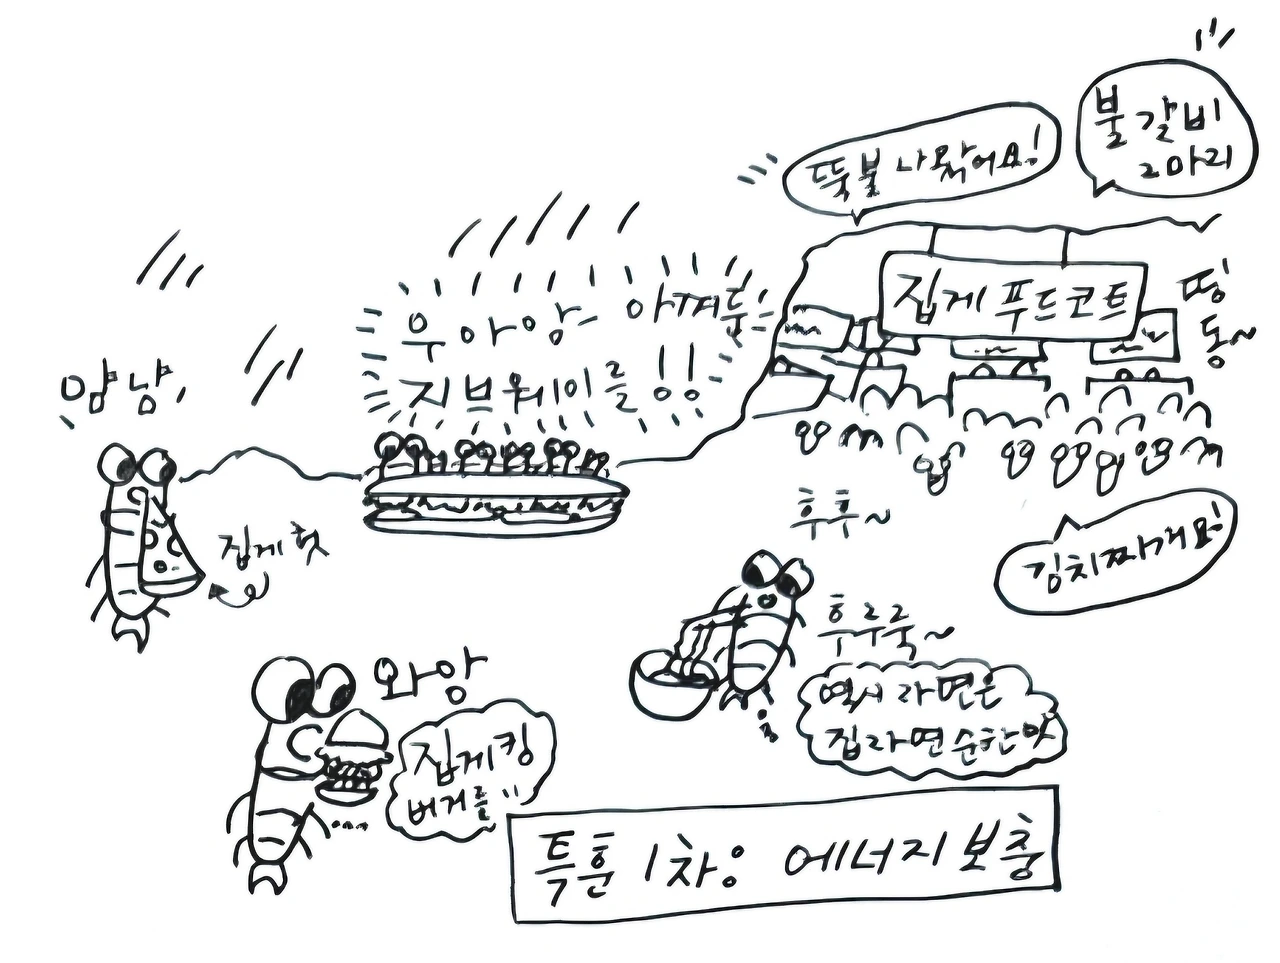 불갈비
2마리
뚝불 나왔어요!
집게 푸드코트
띵
동~
우아앙 아껴둔
지브웨이를!!
냠냠,
집게헛
후후~
김치찌개요!
후루룩~
역시 라면은
집라면 순한맛
음
와앙
집게킹
버거를"
....
특훈 1차: 에너지 보충